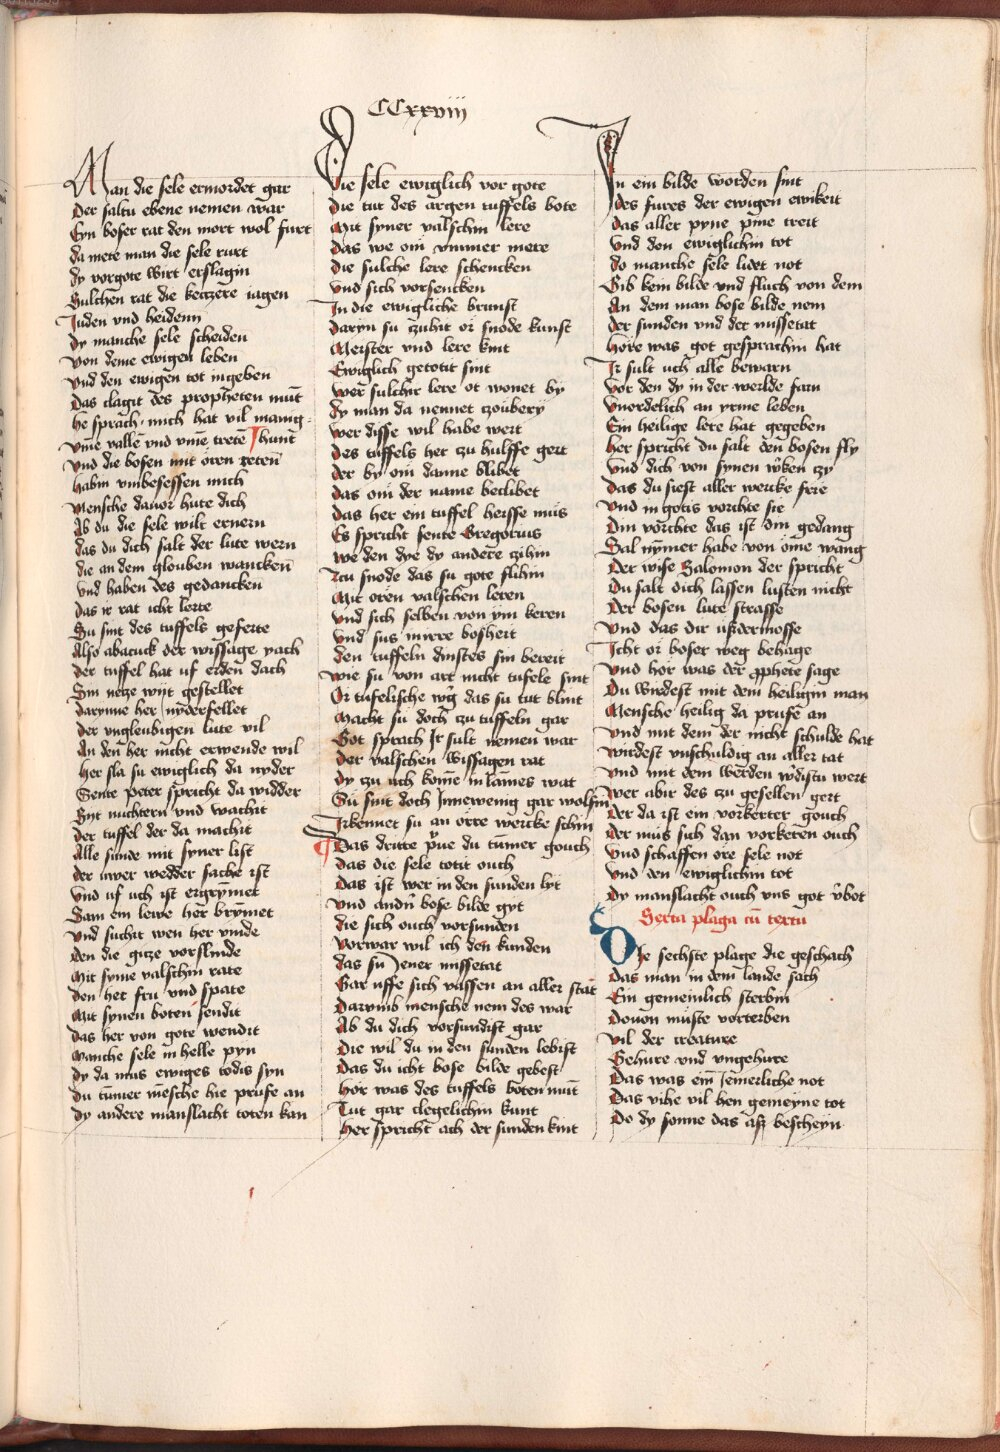 CCxxviii
Man die sele ermordet gar
Der saltu ebene nemen war
Eyn boser rat den mort wol furt
da mete man die sele rurt
dy vorgote wirt erslagin
Sulchen rat die keczere iagen
Juden vnd heidenn
dy manche sele scheiden
von deme ewigen leben
vnd den ewigen tot ingeben
Das clagit des propheten mūt
he sprach mich hat vil manig
vm̄e vallē vnd vm̄e tretē hunt
vnd die bosen mit oren zetēn
habin vmbesessen mich
Mensche dauor hute dich
Ab du die sele wilt ernern
das du dich salt der lute wern
die an dem glouben wanckēn
vnd haben des gedancken
das ir rat icht lerte
Su sint des tuffels geferte
Also abacuck der wissage yach
der tuffel hat uf erden dach
Sin netze wijt gestellet
darynne her nyderfellet
der vngleubigen lute vil
An den her nicht erwende wil
her sla su ewiglich da nyder
Sente peter spricht da widder
Syt nuchtern vnd wachit
der tuffel der da machit
Alle sunde mit syner list
der uwer wedder sache ist
vnd uf uch ist ergrymet
Sam ein lewe her brymet
vnd suchit wen her vinde
den die gitze vorslinde
Mit syme valschin rate
den her fru vnd spate
Mit synen boten sendit
das her von gote wendit
Manche sele in helle pyn
dy da mus ewiges todis syn
du tūmer mēsche hie prufe an
dy andere manslacht toten kan
Die sele ewiglich vor gote
die tut des argen tuffels bote
Mit syner valschin lere
das we om vmmer mere
die sulche lere schencken
vnd sich vorsencken
In die ewigliche brunst
daryn su zuhit or snode kunst
Meister vnd lere kint
Ewiglich getotit sint
wer sulchir lere ot wonet by
dy man da nennet czoubery
wer disse wil habe wert
des tuffels her zu hulffe gert
der by om danne blibet
das om der name beclibet
das her ein tuffel heisse mus
Es spricht sente Gregorius
we den dye dy andere zihin
Zcu snode das su gote flihin
Mit oren valschen leren
vnd sich selben von ym keren
vnd sus mirre bosheit
den tuffeln dinstes sin bereit
wie su von art nicht tufele sint
Or tufelische w͛g das su tut blint
Macht su doch zu tuffeln gar
Got sprach Jr sult nemen war
der valschen wissagen rat
dy zu uch komē in lāmes wat
Su sint doch Jnnewenig gar wolfin
Jrkennet su an orre wercke schin
Das dritte p͛ue du tūmer gouch
das die sele totit ouch
Das ist wer in den sunden lyt
vnd andn̄ bose bilde gyt
die sich ouch vorsunden
vorwar wil ich den kunden
das su Jener missetat
Gar uffe sich vassen an aller stat
darvmb mensche nem des war
Ab du dich vorsundist gar
Die wil du in den sunden lebist
Das du icht bose bilde gebest
Hor was des tuffels boten mūt
Tut gar clegelichin kunt
Her spricht ach der sunden kint
Jn ein bilde worden sint
des fures der ewigen ewikeit
das aller pyne pine treit
vnd den ewiglichin tot
do manche sele lidet not
Gib kem bilde vnd fluch von dem
An dem man bose bilde nem
der sunden vnd der missetat
hore was got gesprachin hat
Jr sult uch alle bewarn
vor den dy in der werlde farn
vnordelich an yrme leben
Ein heilige lere hat gegeben
Her spricht du salt den bosen fly
vnd dich von synen w͛ken zy
das du siest aller wercke frie
vnd in gotis vorchte sie
Din vorchte das ist din gedang
Sal nȳmer habe von ome wang
Der wise Salomon der spricht
Du salt dich lassen lusten nicht
Der bosen lute strasse
vnd das dir ußdermosse
Jcht or boser weg behage
vnd hor was der ꝓphete sage
Du wirdest mit dem heiligin man
Mensche heilig da prufe an
vnd mit dem der nicht schulde hat
wirdest vnschuldig an aller tat
vnd mit dem werden w͛distu wert
wer abir des zu gesellen gert
der da ist ein vorkerter gouch
der mus sich dan vorkeren ouch
vnd schaffen ore sele not
vnd den ewiglichin tot
dy manslacht ouch vns got v͛bot
Serta plaga cū tertu
Die sechste plage die geschach
Das man in dem lande sach
Ein gemeinlich sterbin
Douon muste vorterben
vil der creature
Gehure vnd vngehure
Das was ein Jemerliche not
Das vihe vil hen gemeyne tot
Do dy sonne das aß bescheyn